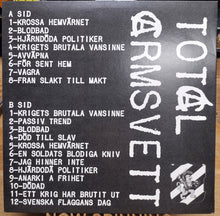 A SID
1-KROSSA HEMVÄRNET
2-BLODBAD
3-HJÄRNDÖDA POLITIKER
4-KRIGETS BRUTALA VANSINNE
5-AVVÄPNA
6-FÖR SENT HEM
7-VAGRA
8-FRAN SLAKT TILL MAKT
B SID
1-KRIGETS BRUTALA VANSINNE
2-PASSIV TREND
3-BLODBAD
4-DÖD TILL SLAV
5-KROSSA HEMVÄRNET
6-EN SOLDATS BLODIGA KNIV
7-JAG HINNER INTE
8-HJÄRDÖDA POLITIKER
9-ANARKI A FRIHET
10-DÖDAD
11-ETT KRIG HAR BRUTIT UT
12-SVENSKA FLAGGANS DAG
TOTAL
ARMSVETT
NOW SPINNING